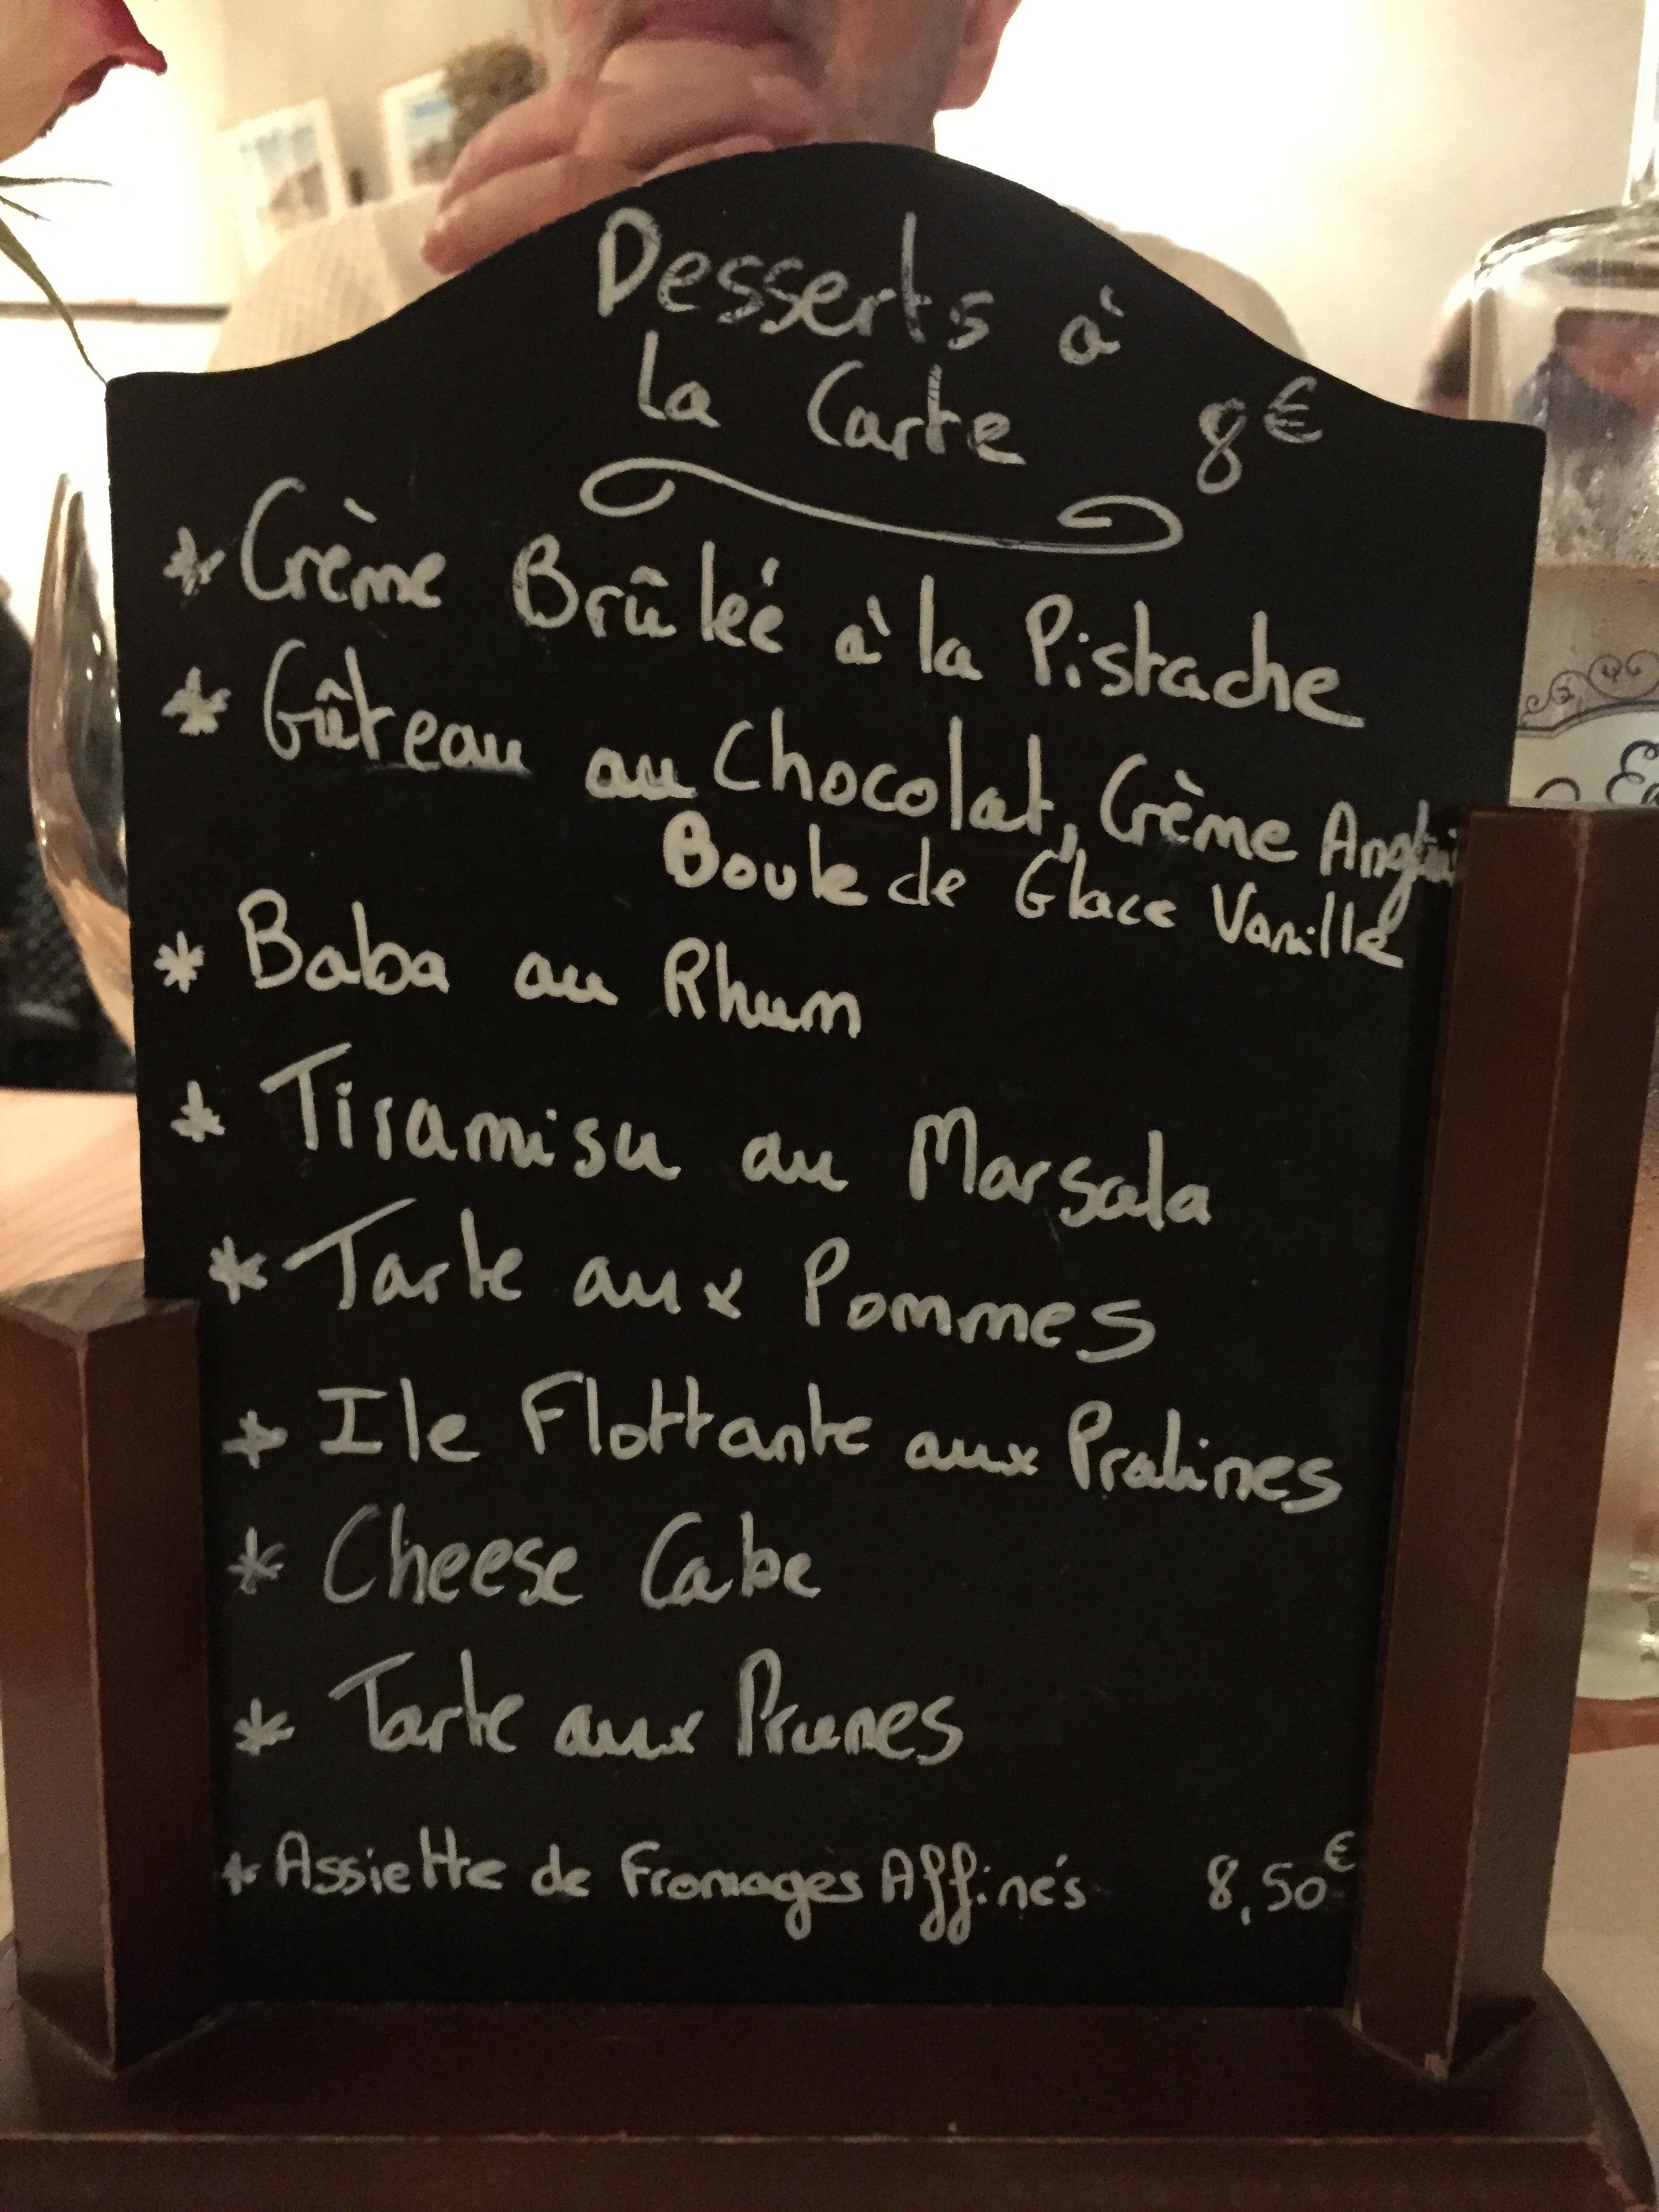 Desserts à
la Carte 8€
* Crème Brûleé à la Pistache
* Gâteau au Chocolat, Crème
Boule de Glace Vanille
* Baba au Rhum
* Tiramisu au Marsala
* Tarte aux Pommes
* Ile Flottante aux Pralines
* Cheese Cake
* Tarte aux Prunes
* Assiette de Fromages Affinés 8,50€